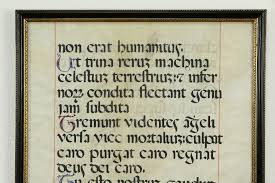 non erat humanitus.
Ut trina rerum machina
celestium terrestrium: et infer
norum condita flectant genu
iam subdita
Tremunt videntes angeli
versa vice mortalium: culpat
caro purgat caro regnat
deus dei caro.
Tu esto nostrum